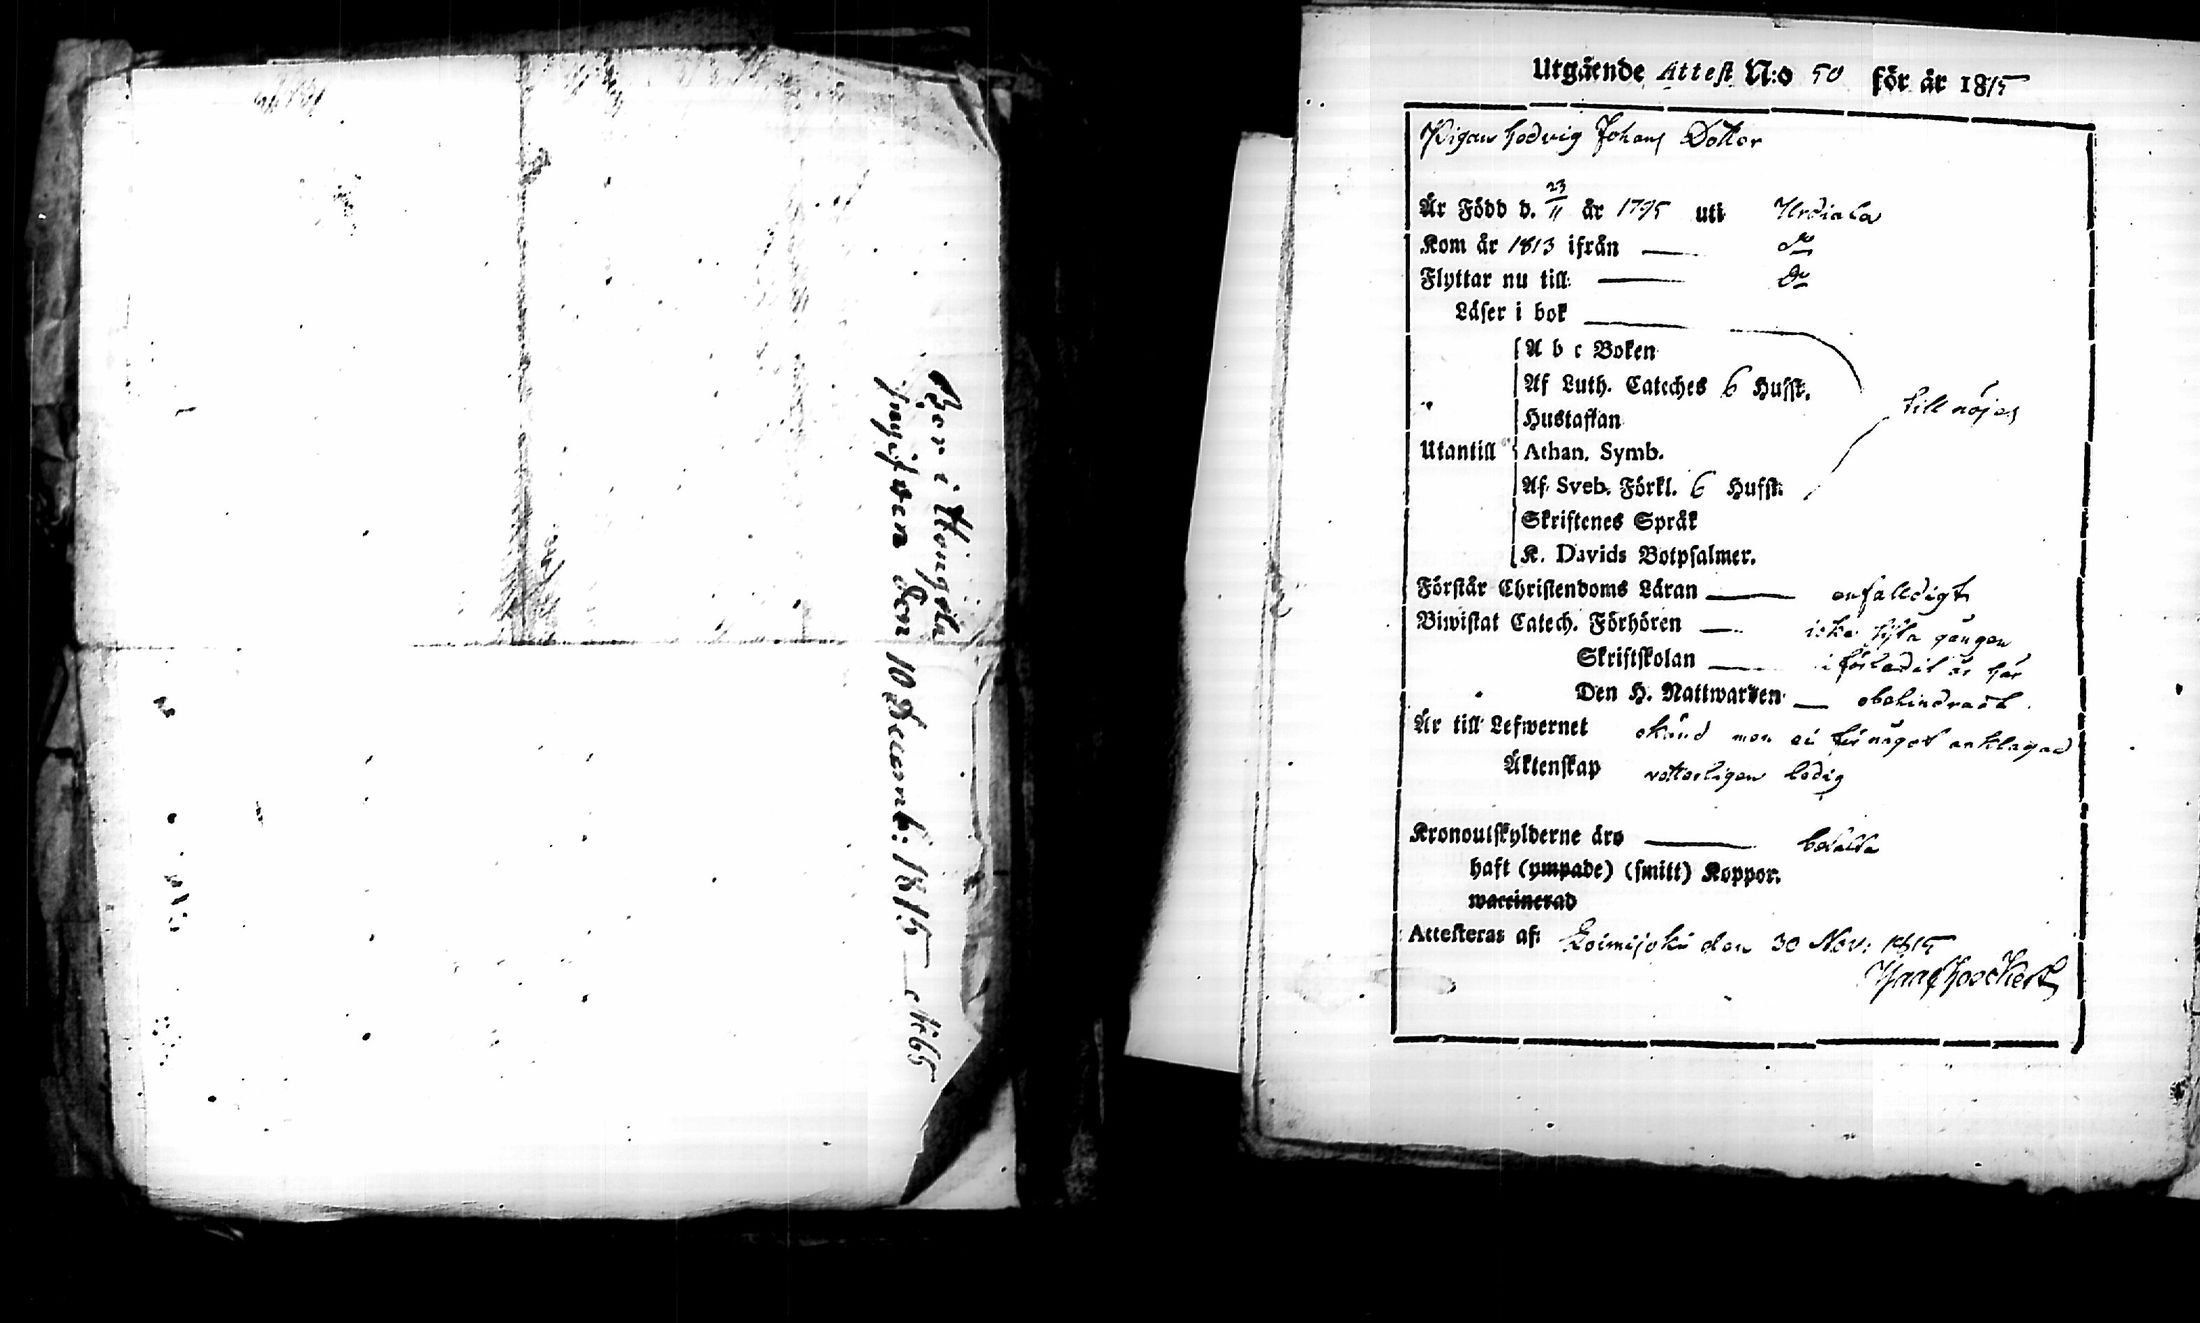 Bor i Hongola
Ingifven den 10 Decemb: 1815 N:65
Utgående Attest N:o 50 för år 1815
Pigan Hedvig Johans Dotter
Är Född d. 23/11 år 1795 uti Urdiala
Kom år 1813 ifrån — do
Flyttar nu till — do
Läser i bok —
A b c Boken
Af Luth. Cateches 6 Hufst.
till nöjes
Hustaflan
Utantill Athan. Symb.
Af Sveb. Förkl. 6 Hufst.
Skriftenes Språk
K. Davids Botpsalmer.
Förstår Christendoms Läran — enfalldigt
Biwistat Catech. Förhören — icke gången
Skriftskolan — i år här
Den H. Nattwarden — obehindradt
Är till Lefwernet okänd men ej för något anklagad
Äktenskap vetterligen ledig
Kronoutskylderne äro — betalda
haft (ympade) (smitt) Koppor.
waccinerad
Attesteras af: Loimijoki den 30 Nov: 1815